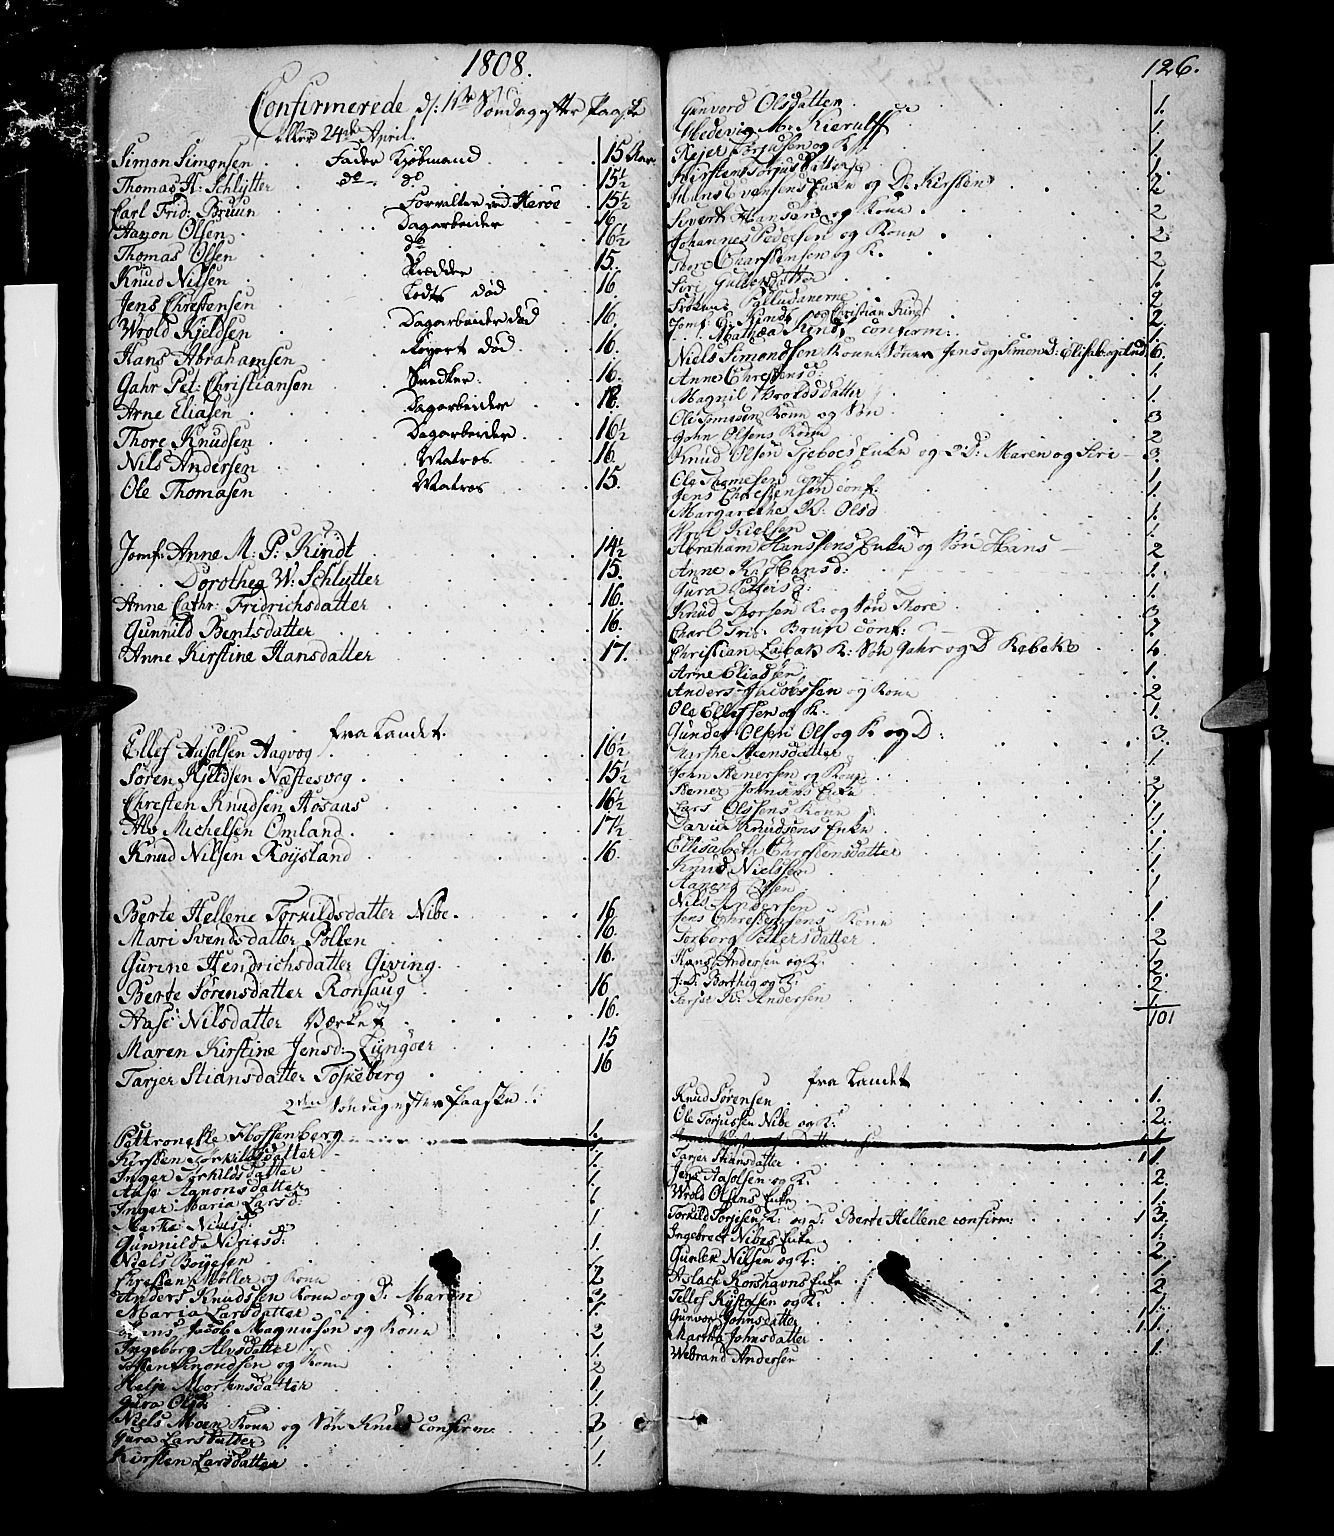 1808.
Confirmerede d: 1ste Søndag efter Paaske
eller 24de April.
Simon Simonsen Fader Kjøbmand 15 Aar
Thomas H. Schlytter do do 15½
Carl Frid: Bruun Forvalter ved Herøe 15½
Aanon Olsen Dagarbeider 16
Thomas Olsen do 16½
Knud Nilsen Skrædder 15.
Jens Chrestensen Lodts død 16
Wrold Kjeldsen Dagarbeider død 16.
Hans Abrahamsen død 16.
Gahr Pet: Christiansen Snedker 16.
Arne Eliasen Dagarbeider 18.
Thore Knudsen Dagarbeider 16½
Nils Andersen Matros 16.
Ole Thomasen Matros 15.
Jomf: Anne M. P. Kindt 14½
Dorothea W: Schlytter 15.
Anne Cathr: Fridrichsdatter 16.
Gunnild Bentsdatter 16.
Anne Kirstine Hansdatter 17.
fra Landet.
Ellef Aasolsen Aagvog 16½
Søren Kjeldsen Næstesvog 15½
Chresten Knudsen Aosaas 16½
Alv Michelsen Omland 17½
Knud Nilsen Røysland 16.
Berte Hellene Torkildsdatter Nibe. 16.
Mari Svendsdatter Pollen 16.
Gurine Hendrichsdatter Giving. 16.
Berte Sørensdatter Ronsaug 16
Aase Nilsdatter Bærket 16.
Maren Kirstine Jensd: Lyngøer 15
Tarjer Stiansdatter Toskeberg 16
2den Søndag efter Paaske
Pettronelle Flossenberg 1.
Kirsten Torkildsdatter 1.
Inger Torkildsdatter 1.
Aase Aanonsdatter 1
Inger Maria Larsd: 1
Marte Nielsd:
Gunnild Nirisd: 1.
Niels Boyesen 1
Chresten Møller og Kone 2
Anders Knudssen Kone og D: Maren 3
Maria Larsdatter 1.
Jens Jacob Magnusen og Kone 2
Ingeborg Alvsdatter 1.
og Kone 2
Helje Mortensdatter 1
Gura Olsd: 1.
Niels Moen Kone og Søn Knud confirm. 3
Gura Larsdatter 1.
Kirsten Larsdatter 1.
126.
Gunvord Olsdatter 1.
Hedevig M. Kierulff 1
Rejer Torjusen og K 1
Kirsten Torjusdatter 1
Hans Evensens Enke og D. Kirsten 2
Sivert Hansen og Kone 2
Johannes Pedersen og Kone 2
Thore Charstensen og K. 2
Siri Gulbrsdatter 1.
Frøkens Palludanerne 2
Jomf: C. Kindt og Christian Kindt 2
Mathea Kindt confirm: 1.
Niels Simondsen Kone Sønner Jens og Simon D: Elisab. og Gund. 6.
Anne Chrestensd: 1.
Magnil Wroldsdatter 1
Ole Tomesen Kone og Søn 3
John Olsens Kone 2
Knud Olsen Sjeboes Enke og 2 D: Maren og Siri 3
Ole Thomesen conf 1
Jens Chrestensen conf: 1.
Margarethe K. Olsd 1.
Wrol Kielsen 1.
Abraham Hanssens Enke og Søn Hans 2
Anne K. Hansd: 1.
Gura Pettersd: 1
Knud Thorsen K. og Søn Thore 3
Charl Frid. Brun conf:
Christian Labak K: Søn Gahr og D Rebeke 4
Arne Eliassen 1.
Anders Jacobssen og Kone 2
Ole Ellefsen og K.
Gunder Olsen Ols og K og D: 3
Steensdatter 1
John Stenersen og Kone 2
Stener Johnsens Enke 1
Lars Olssens Kone 1
David Knudsens Enke 1.
Ellisabeth Chrestensdatter 1
Knud Nielssen 1
Aanond Olsen 1
Nils Andersen 1.
Jens Chrestensens Kone
Torborg Pettersdatter 2
Hans Andersen og K: 2
J. D. Borthig og K: 2
K. Andersen 1.
101
fra Landet
Knud Sørensen 1.
Ole Torjussen Nibe og K: 2
Tarjer Stiansdatter 1.
Jens Aasolsen og K. 2
Wrold Olsens Enke 1.
Torkild Torjesen K: og D: Berte Hellene confirm: 3.
Ingebret Nibes Enke 1
Gunder Nilsen og K: 2
Aslack Korshavns Enke 1
Tellef Kjstolsen og K: 2
Gunvor Johnsdatter 1
Martha Johnsdatter 1
Webrand Andersen 1